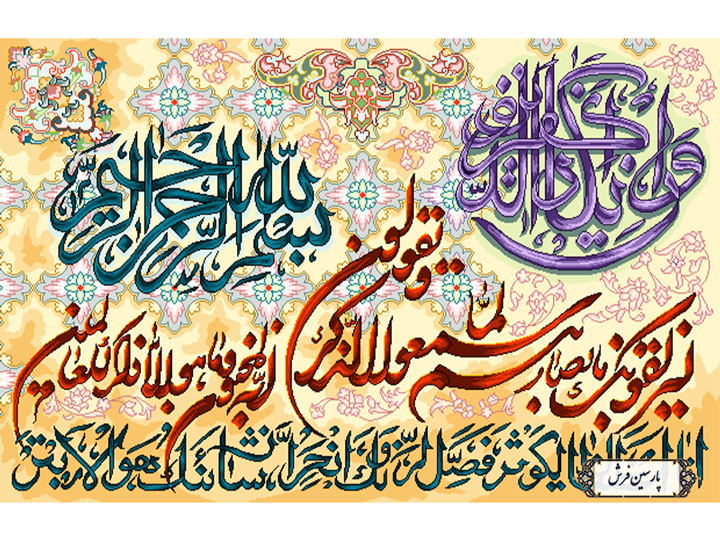 بسم الله الرحمن الرحیم
وان یکاد الذین کفروا
لیزلقونک بابصارهم لما سمعوا الذکر
ویقولون
انه لمجنون وما هو الا ذکر للعالمین
انا اعطیناک الکوثر فصل لربک وانحر ان شانئک هو الابتر
پارسین فرش